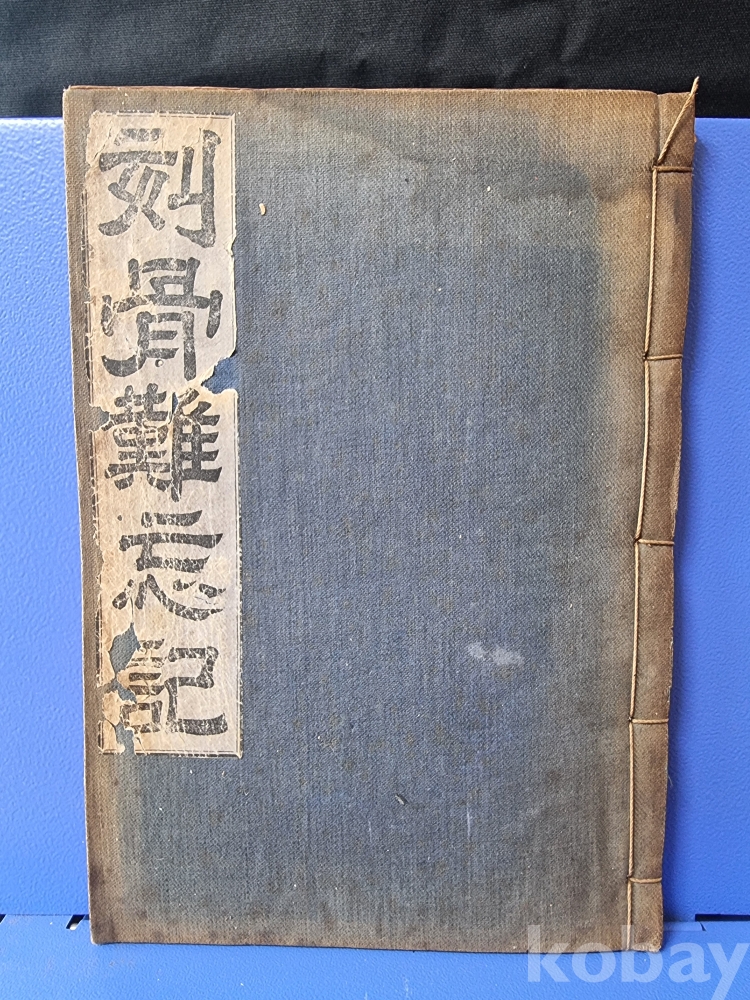 刻骨難忘記
kobay